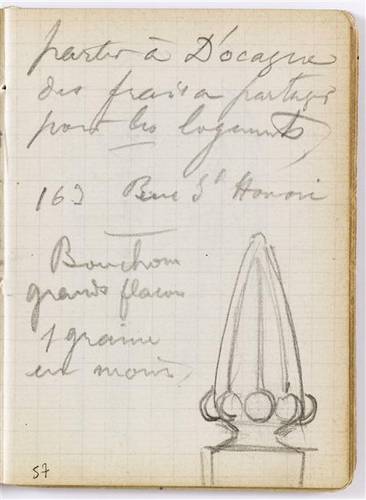 parler à D'ocagne
des frais a partager
pour les logements
163 Rue St Honoré
Bouchon
grands flacon
1 graine
en moins
57